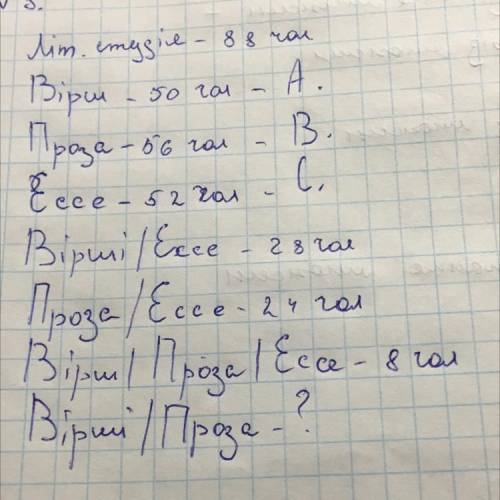 Літ. студія - 88 чол
Вірш - 50 чол - А.
Проза - 56 чол - В.
Ессе - 52 чол - С.
Вірші/Ессе - 28 чол
Проза/Ессе - 24 чол
Вірш/Проза/Ессе - 8 чол
Вірші/Проза - ?